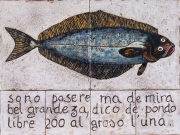 sono pasere ma de mira
bel grandeza, dico de pondo
libre 200 al groso l'una..